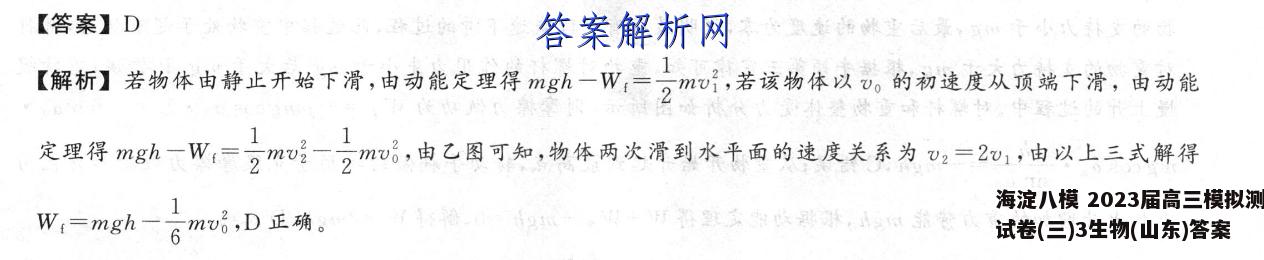 【答案】D
答案解析网
【解析】若物体由静止开始下滑,由动能定理得 mgh－W_f＝\frac{1}{2}mv_1^2,若该物体以 v_0 的初速度从顶端下滑,由动能
定理得 mgh－W_f＝\frac{1}{2}mv_2^2－\frac{1}{2}mv_0^2,由乙图可知,物体两次滑到水平面的速度关系为 v_2＝2v_1,由以上三式解得
W_f＝mgh－\frac{1}{6}mv_0^2,D 正确。
海淀八模 2023届高三模拟测
试卷(三)3生物(山东)答案